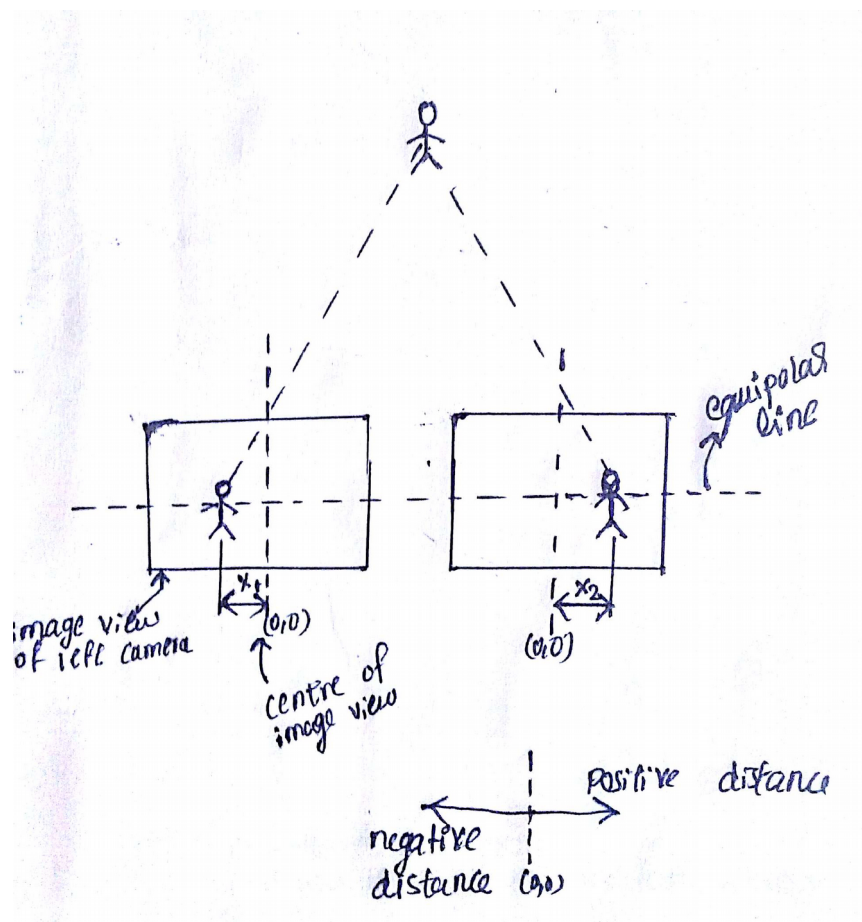 equipolar
line
x₁
x₂
image view
of left camera
(0,0)
(0,0)
centre of
image view
positive distance
negative
distance (0,0)